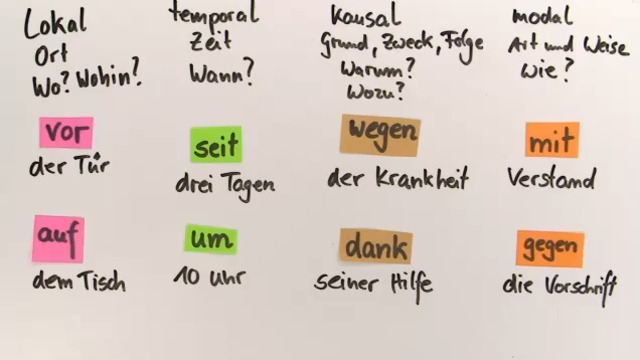 Lokal
Ort
Wo? Wohin?
vor
der Tür
auf
dem Tisch
temporal
Zeit
Wann?
seit
drei Tagen
um
10 Uhr
kausal
Grund, Zweck, Folge
Warum?
Wozu?
wegen
der Krankheit
dank
seiner Hilfe
modal
Art und Weise
Wie?
mit
Verstand
gegen
die Vorschrift